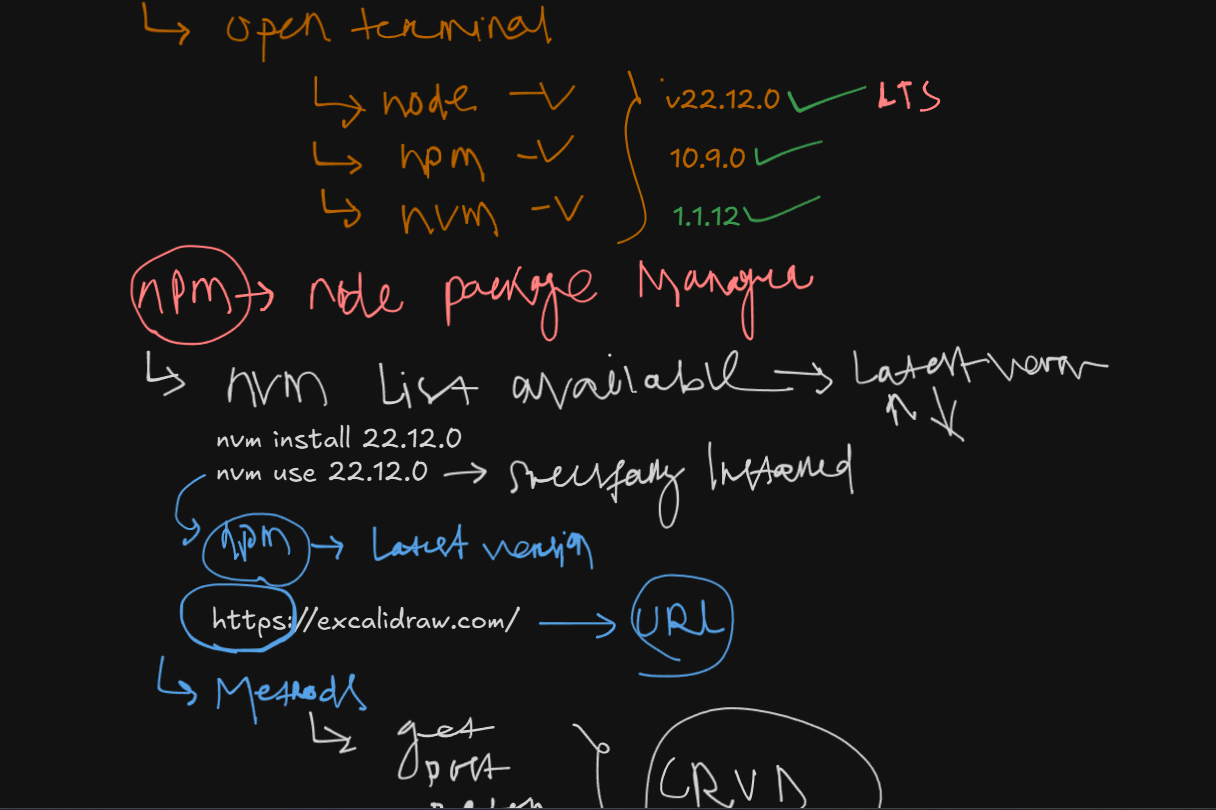 ↳ open terminal
↳ node -v v22.12.0 ✓ LTS
↳ npm -v 10.9.0 ✓
↳ nvm -v 1.1.12 ✓
npm → node package Manager
↳ nvm List available → Latest version ↓
nvm install 22.12.0
nvm use 22.12.0 → Installed
npm → Latest version
https://excalidraw.com/ → URL
↳ Methods
↳ get
post
CRUD